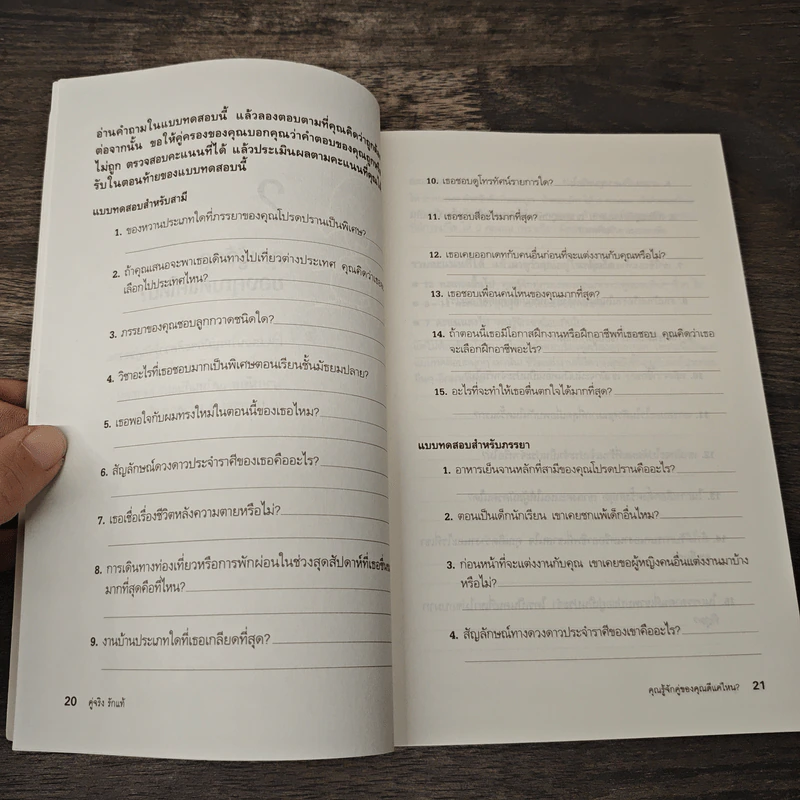 อ่านคำถามในแบบทดสอบนี้ แล้วลองตอบตามที่คุณคิดว่าถูกต้อง
ต่อจากนั้น ขอให้คู่ครองของคุณบอกคุณว่าคำตอบของคุณถูกหรือ
ไม่ถูก ตรวจสอบคะแนนที่ได้ แล้วประเมินผลตามคะแนนที่คุณได้
รับในตอนท้ายของแบบทดสอบนี้
แบบทดสอบสำหรับสามี
1. ของหวานประเภทใดที่ภรรยาของคุณโปรดปรานเป็นพิเศษ?
2. ถ้าคุณเสนอจะพาเธอเดินทางไปเที่ยวต่างประเทศ คุณคิดว่าเธอ
เลือกไปประเทศไหน?
3. ภรรยาของคุณชอบลูกกวาดชนิดใด?
4. วิชาอะไรที่เธอชอบมากเป็นพิเศษตอนเรียนชั้นมัธยมปลาย?
5. เธอพอใจกับผมทรงใหม่ในตอนนี้ของเธอไหม?
6. สัญลักษณ์ดวงดาวประจำราศีของเธอคืออะไร?
7. เธอเชื่อเรื่องชีวิตหลังความตายหรือไม่?
8. การเดินทางท่องเที่ยวหรือการพักผ่อนในช่วงสุดสัปดาห์ที่เธอชื่น
มากที่สุดคือที่ไหน?
9. งานบ้านประเภทใดที่เธอเกลียดที่สุด?
20 คู่จริง รักแท้
10. เธอชอบดูโทรทัศน์รายการใด?
11. เธอชอบสีอะไรมากที่สุด?
12. เธอเคยออกเดทกับคนอื่นก่อนที่จะแต่งงานกับคุณหรือไม่?
13. เธอชอบเพื่อนคนไหนของคุณมากที่สุด?
14. ถ้าตอนนี้เธอมีโอกาสฝึกงานหรือฝึกอาชีพที่เธอชอบ คุณคิดว่าเธอ
จะเลือกฝึกอาชีพอะไร?
15. อะไรที่จะทำให้เธอตื่นตกใจได้มากที่สุด?
แบบทดสอบสำหรับภรรยา
1. อาหารเย็นจานหลักที่สามีของคุณโปรดปรานคืออะไร?
2. ตอนเป็นเด็กนักเรียน เขาเคยชกแพ้เด็กอื่นไหม?
3. ก่อนหน้าที่จะแต่งงานกับคุณ เขาเคยขอผู้หญิงคนอื่นแต่งงานมาบ้าง
หรือไม่?
4. สัญลักษณ์ทางดวงดาวประจำราศีของเขาคืออะไร?
คุณรู้จักคู่ของคุณดีแค่ไหน? 21